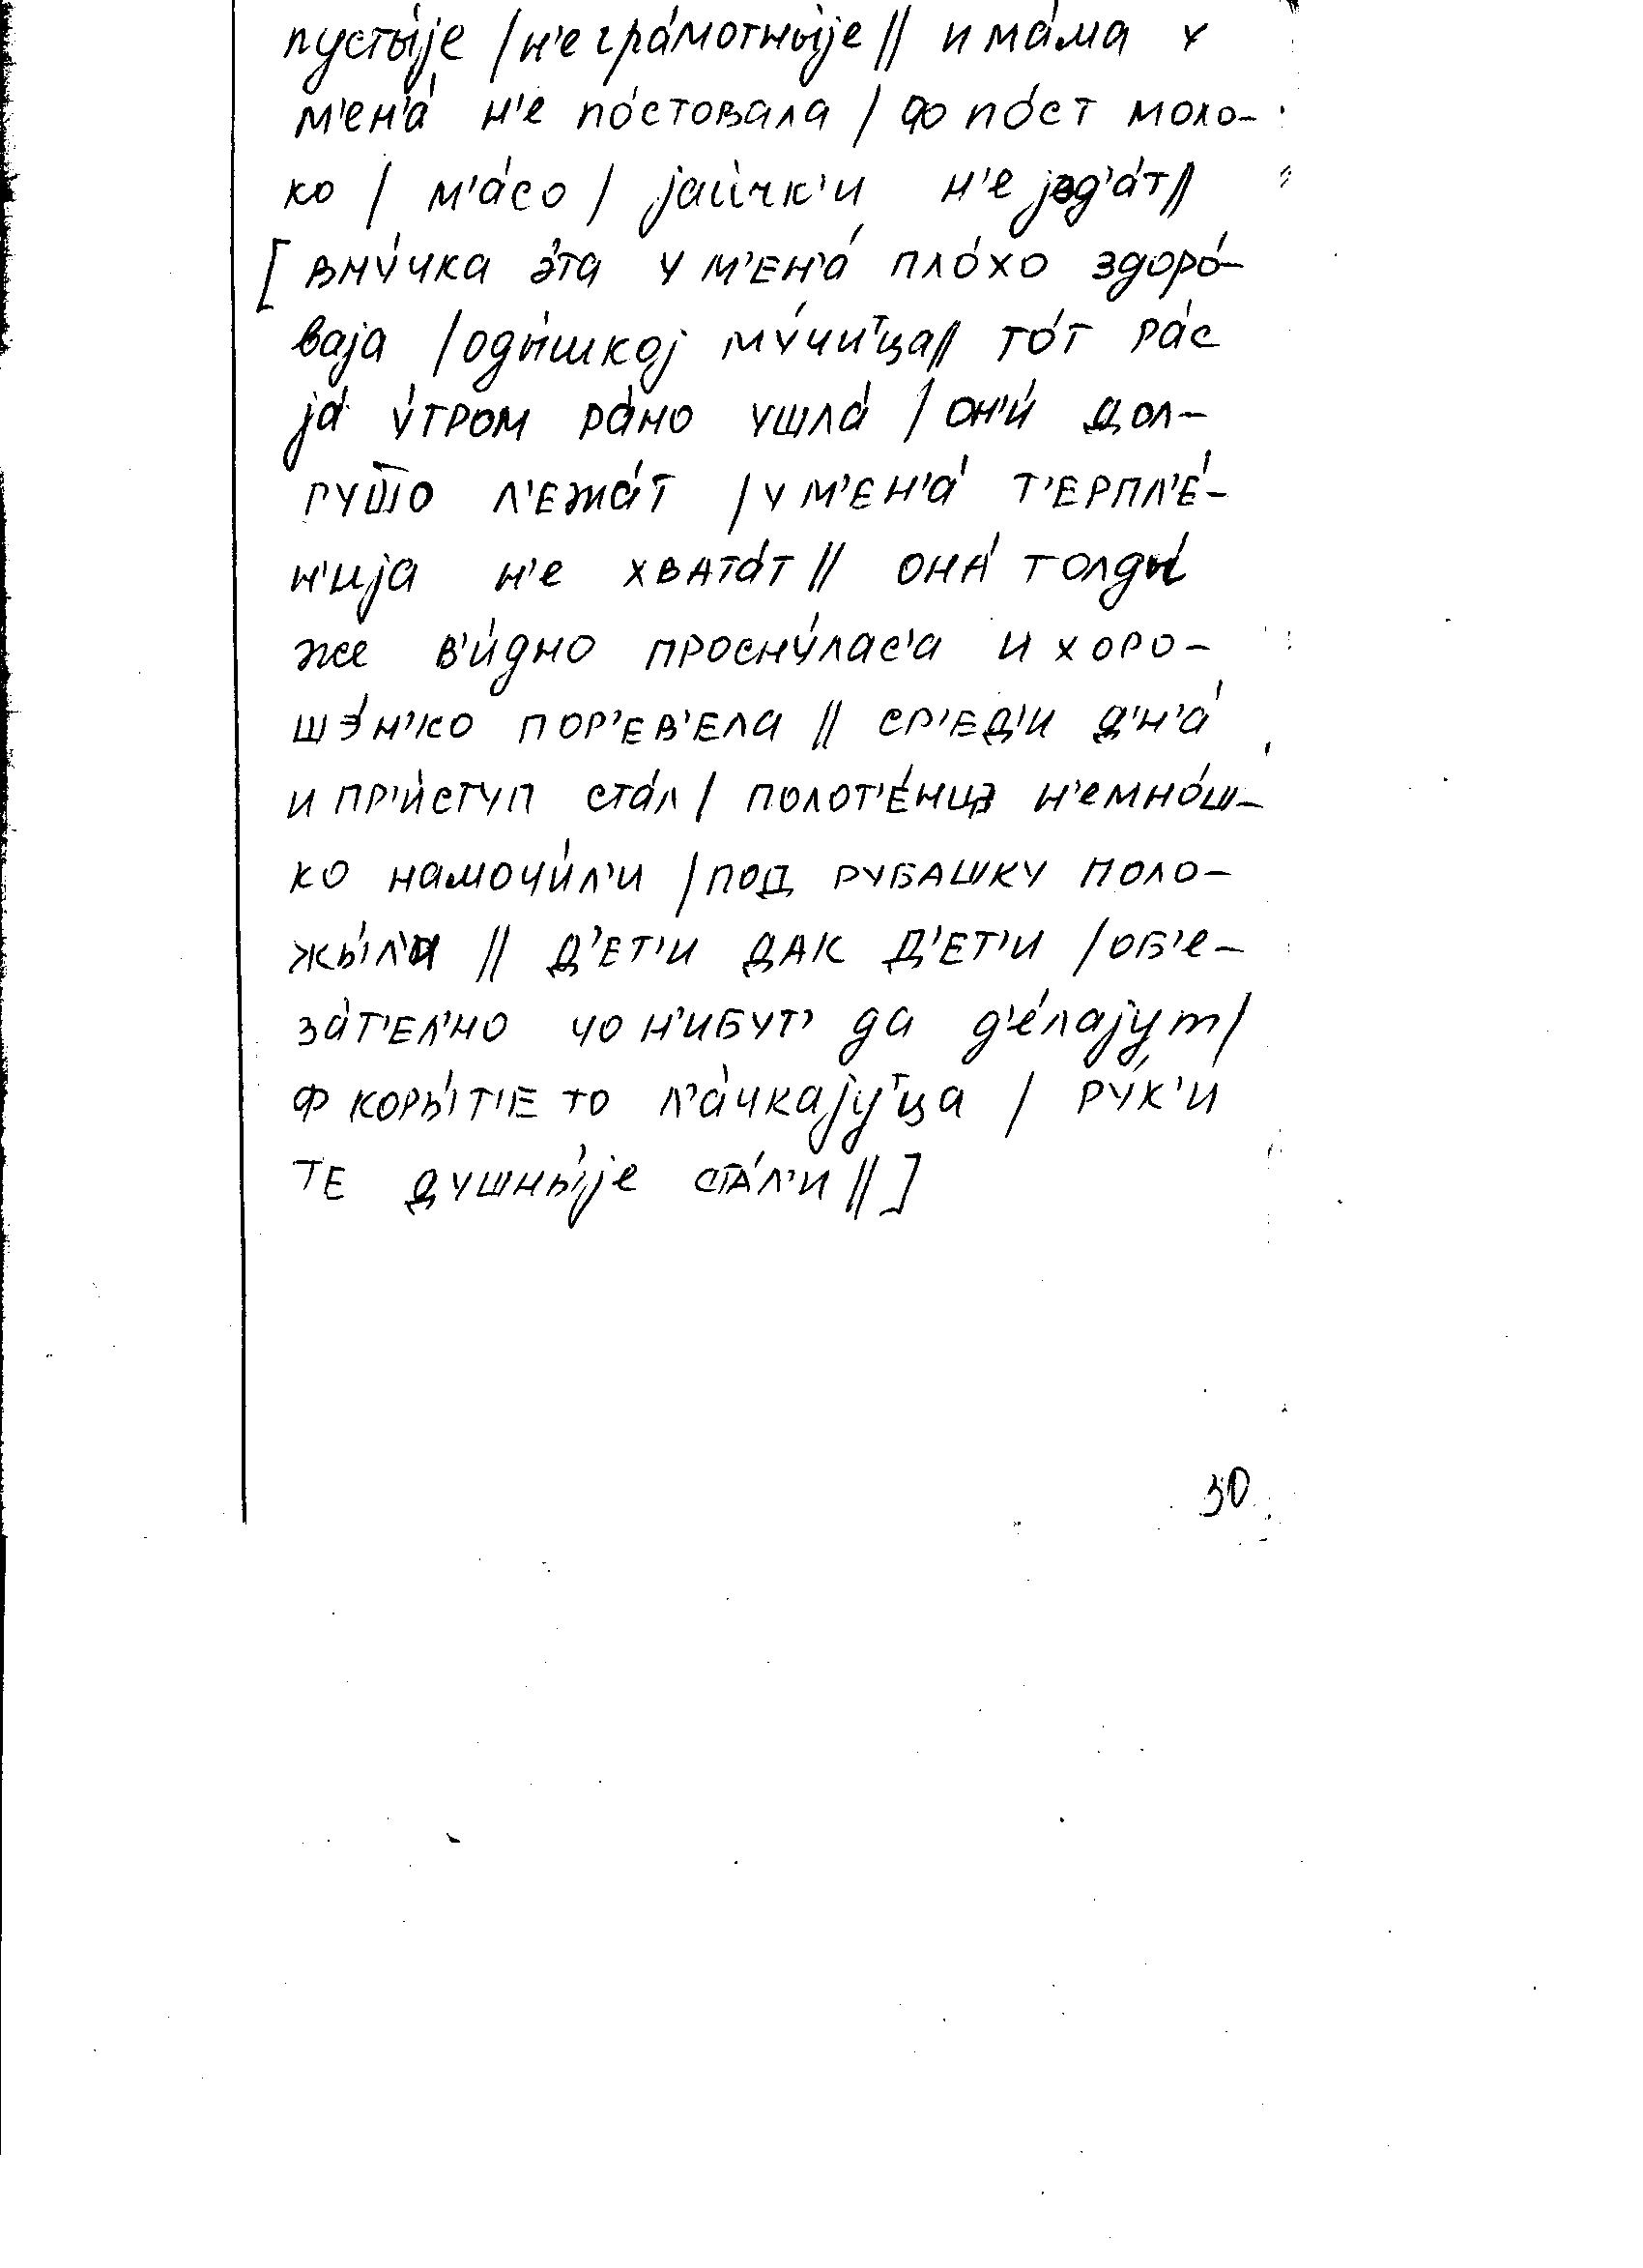 пусты́jе / н'егра́мотныjе // и ма́ма у
м'ен'а́ н'е по́стовала / фо по́ст моло-
ко / м'а́со / jаи́чк'и н'е jед'а́т //
[ вну́чка э́та у м'ен'а́ пло́хо здоро́-
ваjа / оды́шкоj му́чиᵀца // то́т ра́с
jа́ у́тром ра́но ушла́ / он'и́ дол-
гушо л'ежа́т / у м'ен'а́ т'ерпл'е́-
н'иjа н'е хвата́т // она́ толды́
же в'и́дно просну́лас'а и хоро-
шэ́н'ко пор'ев'ела // ср'ед'и д'н'а́
и пр'и́ступ ста́л / полот'е́нцэ н'емно́ш-
ко намочи́л'и / под рубашку поло-
жы́л'и // д'ет'и дак д'ет'и / об'е-
за́т'ел'но чо н'ибут' да д'е́лаjут /
ф коры́т'е то л'а́чкаjуᵀца / ру́к'и
те душны́jе ста́л'и // ]
30